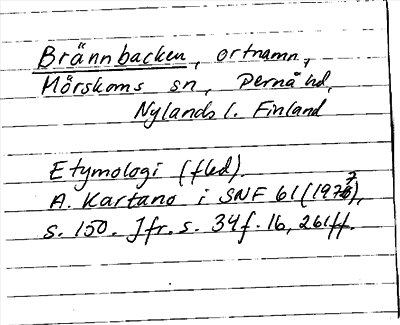 Brännbacken, ortnamn,
Mörskoms sn, Pernå hd,
Nylands l. Finland
Etymologi (fled).
A. Kartano i SNF 61 (1977),
s. 150. Jfr. s. 34 f. 16, 261 ff.